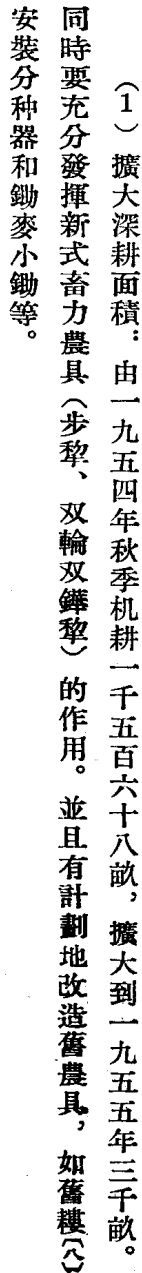 （1）擴大深耕面積：由一九五四年秋季机耕一千五百六十八畝，擴大到一九五五年三千畝。
同時要充分發揮新式畜力農具（步犂、双輪双鏵犂）的作用。並且有計劃地改造舊農具，如舊耬〔八〕
安裝分种器和鋤麥小鋤等。